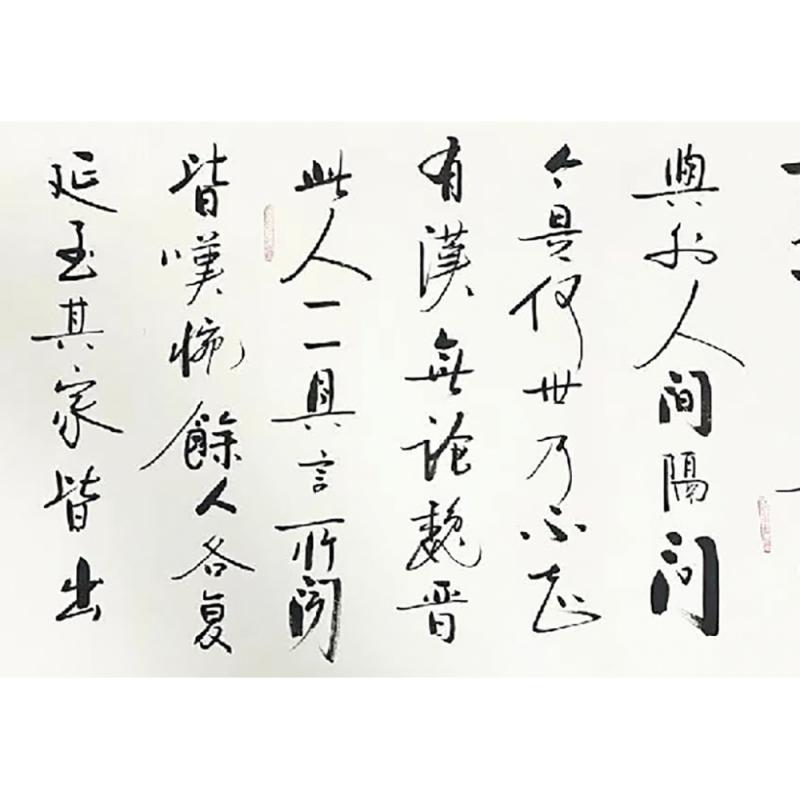 與外人間隔問
今是何世乃不知
有漢無論魏晋
此人一一具言所聞
皆嘆惋餘人各复
延至其家皆出